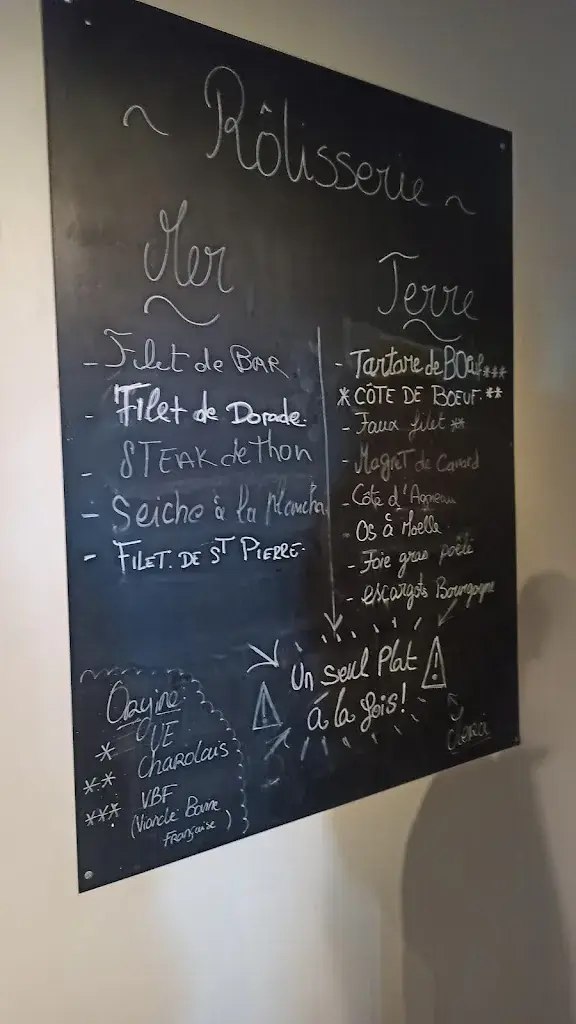 ~ Rôtisserie ~
Mer
- Filet de BAR
- Filet de Dorade.
- STEAK de thon
- Seiche à la Plancha
- FILET. DE ST PIERRE.
Terre
- Tartare de BOEuf ***
* CÔTE DE BOEUF. **
- Faux filet **
- Magret de Canard
- Côte d'Agneau
- Os à Moelle
- Foie gras poêlé
- escargots Bourgogne
Un seul Plat
à la fois!
Merci
Origine:
* UE
** Charolais
*** VBF
(Viande Bovine
Française)